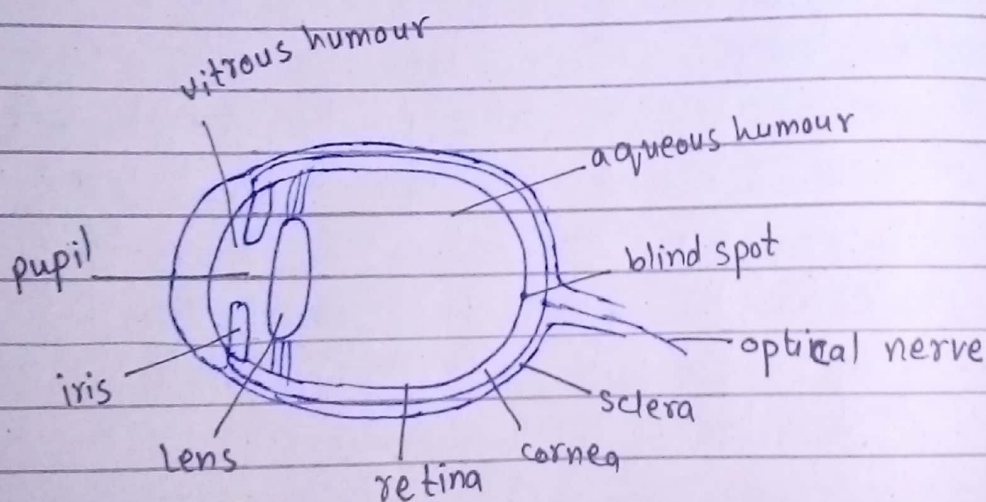 vitrous humour
aqueous humour
pupil
blind spot
optical nerve
iris
sclera
lens
cornea
retina